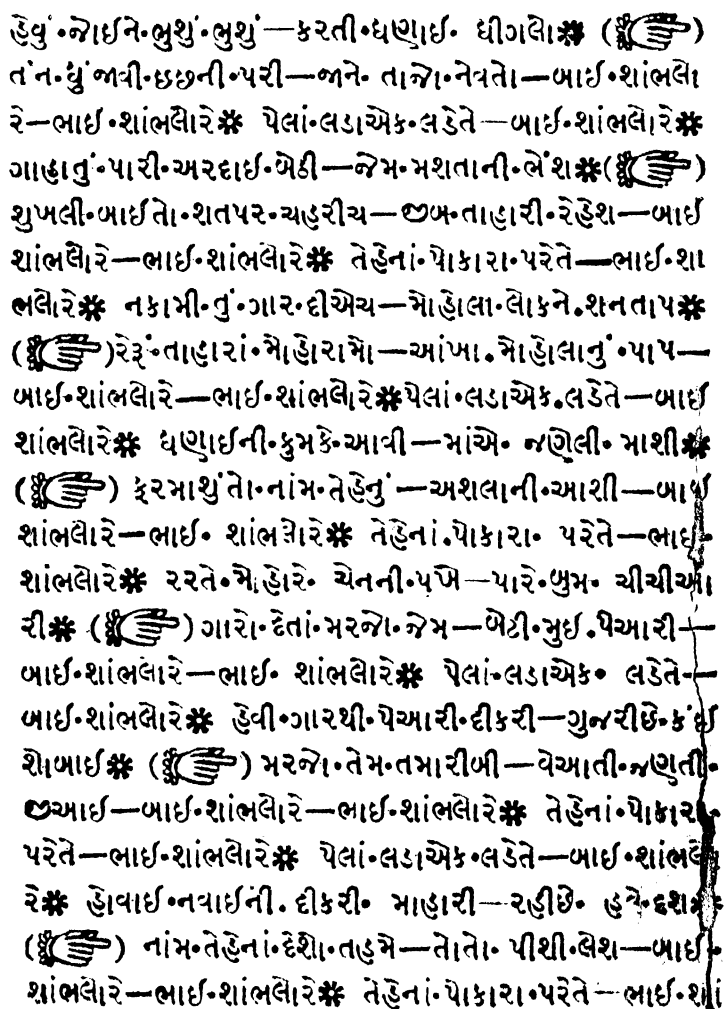 હેવું•જોઈને•ભુશું•ભુશું —કરતી•ધણાઈ• ધીગલો✽ (☞)
તંન•ધું જાવી•છછની•પરી—જાને• તાજો•નેવતો—બાઈ•શાંભલો
રે—ભાઈ•શાંભલોરે✽ પેલાં•લડાએક•લડેતે—બાઈ•શાંભલોરે✽
ગાહાતું•પારી•અરદાઈ•બેઠી—જેમ•મશતાની•ભેંશ✽(☞)
શુખલી•બાઈતો•શતપર•ચહરીચ—જીબ•તાહારી•રેહેશ—બાઈ
શાંભલોરે—ભાઈ•શાંભલોરે✽ તેહેનાં•પોકારા•પરેતે—ભાઈ•શા
ભલોરે✽ નકામી•તું•ગાર•દીએચ—મોહોલા•લોકને•શનતાપ✽
(☞)રેરૂં•તાહારાં•મોહોરામો—આંખા•મોહોલાનું•પાપ—
બાઈ•શાંભલોરે—ભાઈ•શાંભલોરે✽પેલાં•લડાએક•લડેતે—બાઈ
શાંભલોરે✽ ધણાઈની•કુમકે•આવી—માંએ• જણેલી•માશી✽
(☞) કૂરમાશુંતો•નાંમ•તેહેનું—અશલાની•આશી—બાઈ
શાંભલોરે—ભાઈ• શાંભલોરે✽ તેહેનાં•પોકારા• પરેતે—ભાઈ•
શાંભલોરે✽ રરતે•મોહોરે• ચેનની•પખે—પારે•બુમ• ચીચીઆ
રી✽ (☞)ગારો•દેતાં•મરજો•જેમ—બેટી•મુઈ•પેઆરી—
બાઈ•શાંભલોરે—ભાઈ• શાંભલોરે✽ પેલાં•લડાએક• લડેતે—
બાઈ•શાંભલોરે✽ હેવી•ગારથી•પેઆરી•દીકરી—ગુજરીછે•કંઈ
શોબાઈ✽ (☞)મરજો•તેમ•તમારીબી—વેઆતી•જણતી•
જીઆઈ—બાઈ•શાંભલોરે—ભાઈ•શાંભલોરે✽ તેહેનાં•પોકારા•
પરેતે—ભાઈ•શાંભલોરે✽ પેલાં•લડાએક•લડેતે—બાઈ•શાંભલો
રે✽ હોવાઈ•નવાઈની•દીકરી• માહારી—રહીછે• હવે•દશ✽
(☞) નાંમ•તેહેનાં•દેશો•તહમે—તોતો• પીશી•લેશ—બાઈ•
શાંભલોરે—ભાઈ•શાંભલોરે✽ તેહેનાં•પોકારા•પરેતે—ભાઈ•શાં